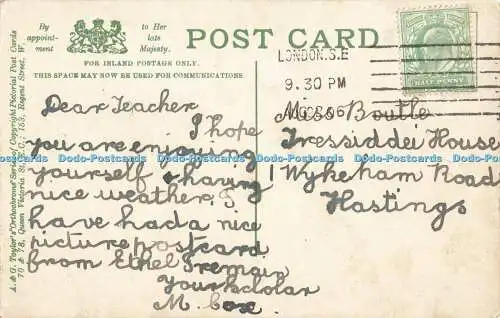 By
appoint-
ment
to Her
late
Majesty.
POST CARD
FOR INLAND POSTAGE ONLY.
THIS SPACE MAY NOW BE USED FOR COMMUNICATIONS.
A. & G. Taylor's "Orthochrome" Series of Copyright Pictorial Post Cards
70 & 78, Queen Victoria St., E.C.; 153, Regent Street, W.
LONDON.S.E
9.30 PM
06
HALF PENNY
Dear Teacher
I hope
you are enjoying
yourself & having
nice weather. I
have had a nice
picture postcard
from Ethel Tremain
Your Scholar
M. Cox.
Miss Boutle
Tressiddei House
1 Wykeham Road
Hastings
Dodo-Postcards Dodo-Postcards Dodo-Postcards Dodo-Postcards Dodo-Postcards Dodo-Postcards